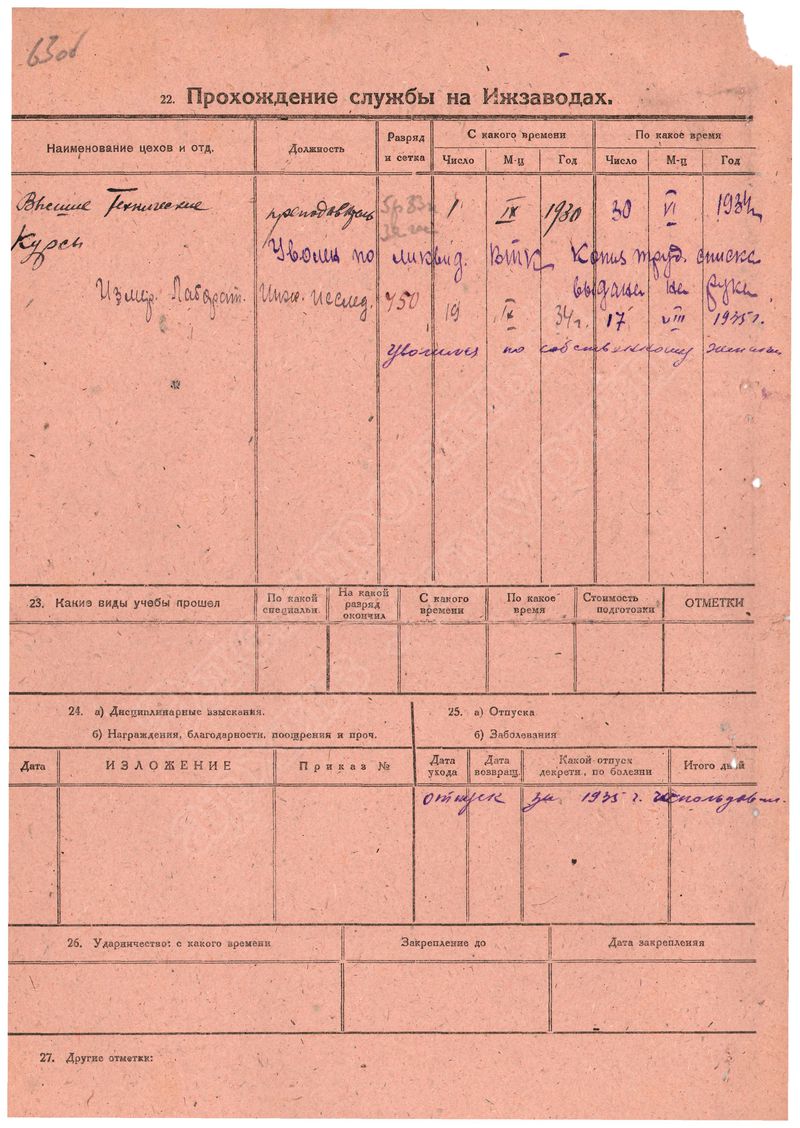 63об
22. Прохождение службы на Ижзаводах.
Наименование цехов и отд. Должность Разряд и сетка С какого времени По какое время
Число М-ц Год Число М-ц Год
Высшие Технические преподаватель 1 IX 1930 30 VI 1934г.
Курсы
Уволен по ликвид. ВТК Копия труд. списка
выдана на руки
Измер. Лаборат. Инж. исслед. 450 19 IX 34г. 17 VIII 1935г.
Уволился по собственному желанию
23. Какие виды учебы прошел По какой специальн. На какой разряд окончил С какого времени По какое время Стоимость подготовки ОТМЕТКИ
24. а) Дисциплинарные взыскания. 25. а) Отпуска
б) Награждения, благодарности, поощрения и проч. б) Заболевания
Дата ИЗЛОЖЕНИЕ Приказ № Дата ухода Дата возвращ. Какой отпуск декретн., по болезни Итого дней
отпуск за 1935 г. использовал.
26. Ударничество: с какого времени Закрепление до Дата закрепления
27. Другие отметки: